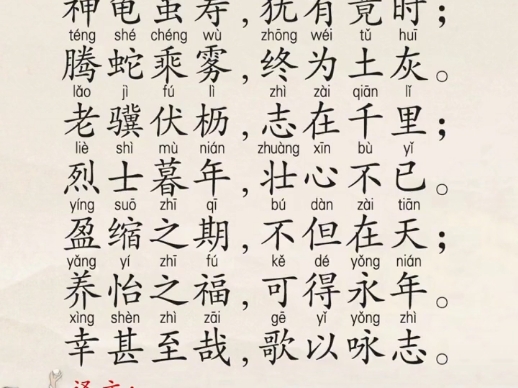 神龟虽寿,犹有竟时;
téng shé chéng wù zhōng wéi tǔ huī
腾蛇乘雾,终为土灰。
lǎo jì fú lì zhì zài qiān lǐ
老骥伏枥,志在千里;
liè shì mù nián zhuàng xīn bù yǐ
烈士暮年,壮心不已。
yíng suō zhī qī bú dàn zài tiān
盈缩之期,不但在天;
yǎng yí zhī fú kě dé yǒng nián
养怡之福,可得永年。
xìng shèn zhì zāi gē yǐ yǒng zhì
幸甚至哉,歌以咏志。
译文: